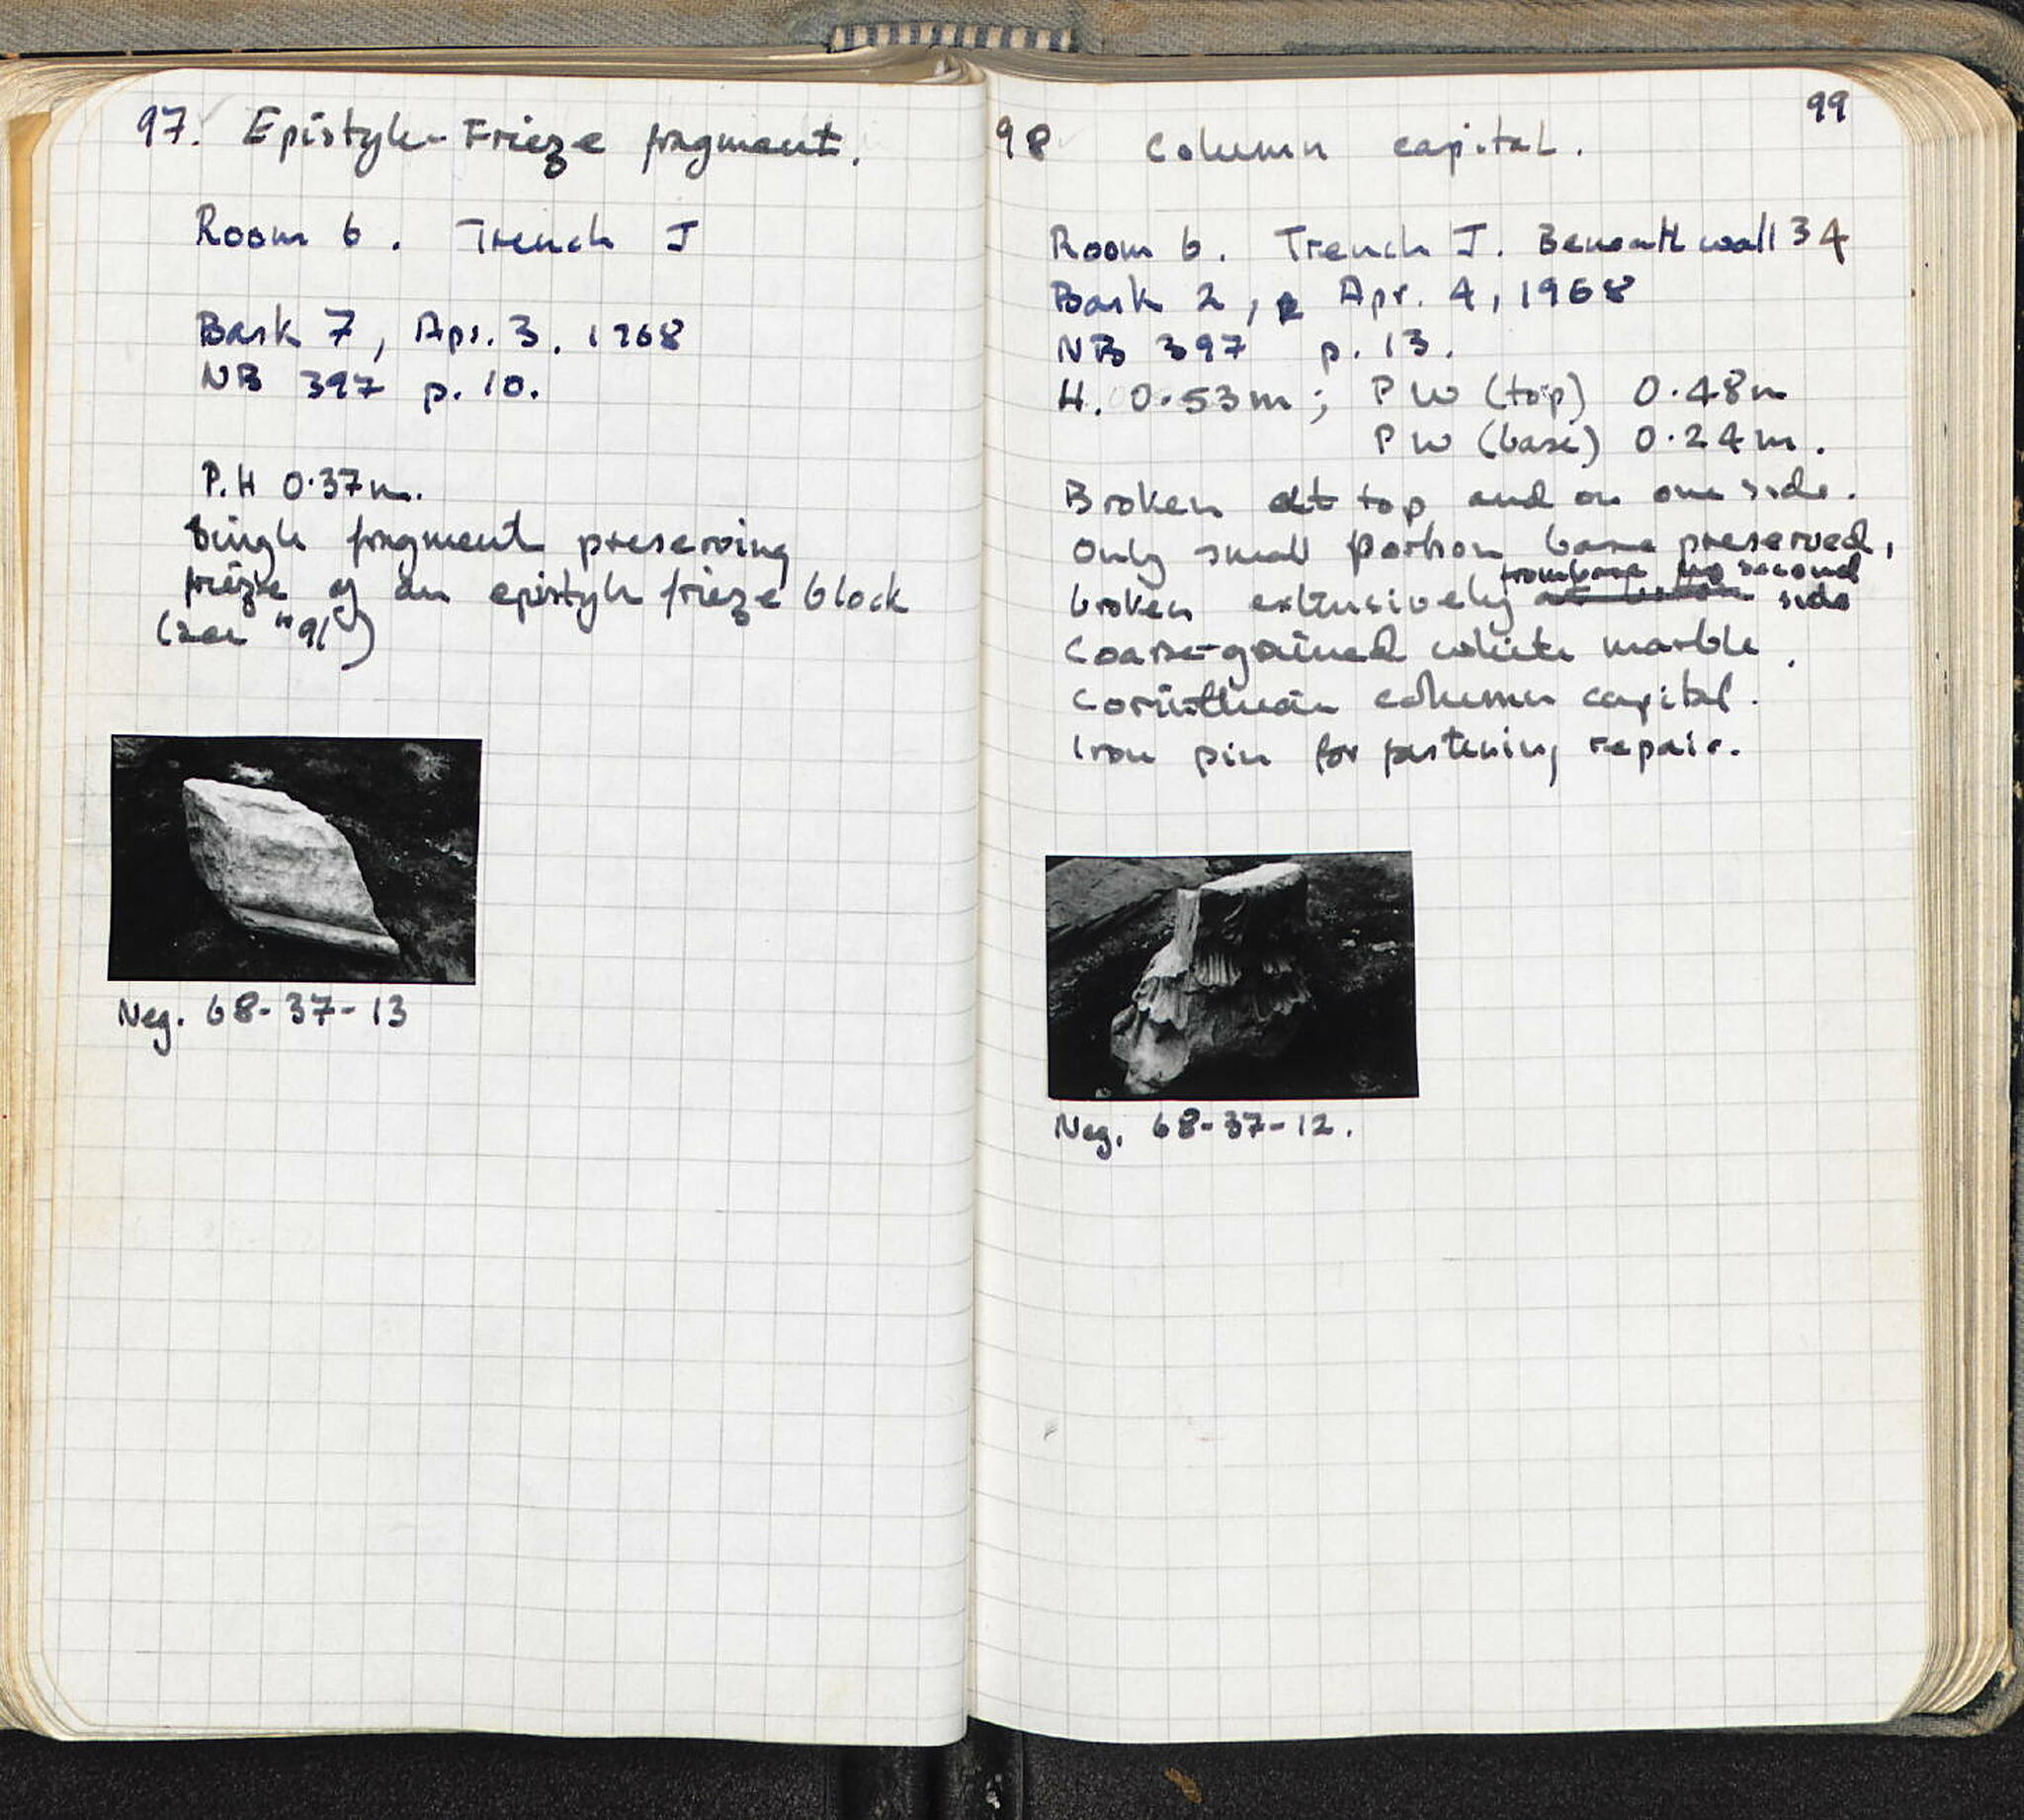 97. Epistyle-Frieze fragment.
Room 6. Trench J
Bask 7, Apr. 3. 1968
NB 397 p. 10.
P.H 0.37m.
Single fragment preserving
frieze of an epistyle frieze block
(see "91")
Neg. 68-37-13
99
98 Column capital.
Room 6. Trench J. Beneath wall 34
Bask 2, Apr. 4, 1968
NB 397 p. 13.
H. 0.53m; PW (top) 0.48m
PW (base) 0.24m.
Broken at top and on one side.
Only small portion base preserved,
from base second
broken extensively at bottom side
Coarse-grained white marble.
Corinthian column capital.
Iron pin for fastening repair.
Neg. 68-37-12.